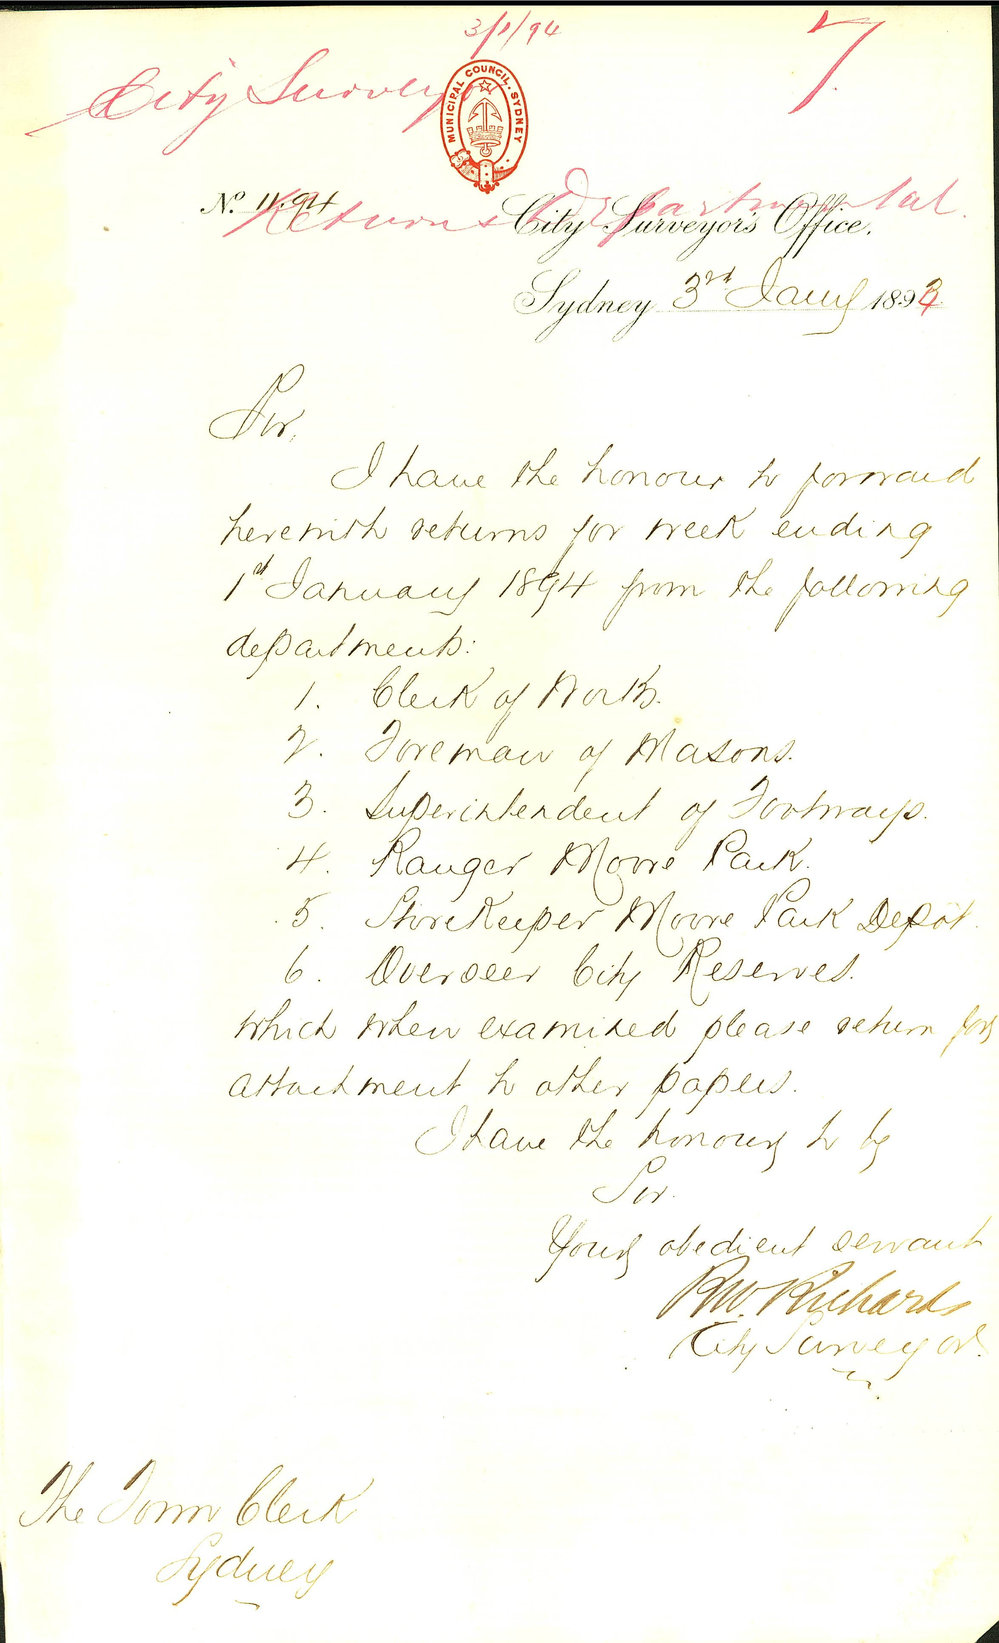 3/1/94
7.
City Surveyor
MUNICIPAL COUNCIL. SYDNEY
No. 11.94
Returns Departmental.
City Surveyor's Office.
Sydney 3rd Jany 1894
Sir,
I have the honour to forward
herewith returns for week ending
1st January 1894 from the following
departments:
1. Clerk of Works.
2. Foreman of Masons.
3. Superintendent of Footways.
4. Ranger Moore Park.
5. Storekeeper Moore Park Depôt.
6. Overseer City Reserves.
which when examined please return for
attachment to other papers.
I have the honour to be
Sir.
Your obedient servant
RW. Richards
City Surveyor.
The Town Clerk
Sydney